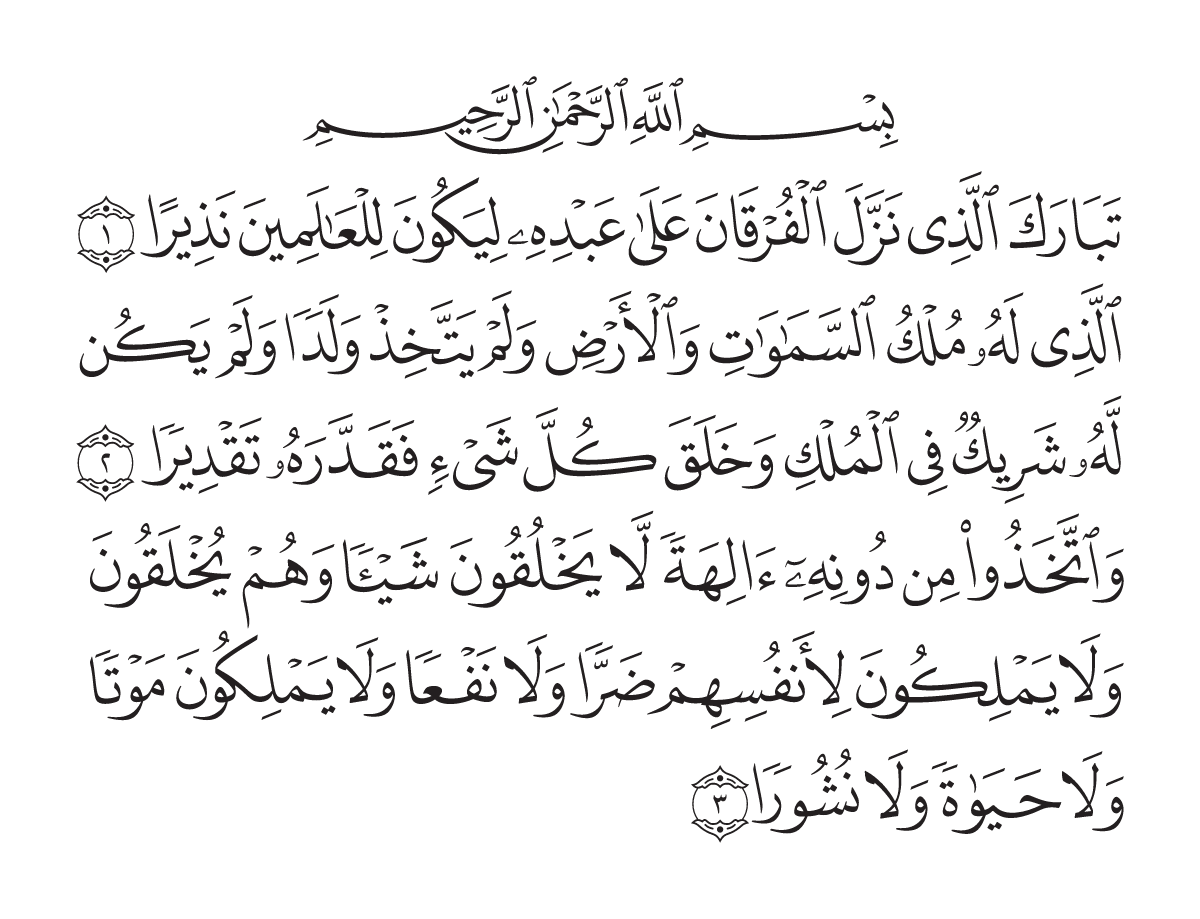 بِسْمِ ٱللَّهِ ٱلرَّحْمَٰنِ ٱلرَّحِيمِ
تَبَارَكَ ٱلَّذِى نَزَّلَ ٱلْفُرْقَانَ عَلَىٰ عَبْدِهِۦ لِيَكُونَ لِلْعَٰلَمِينَ نَذِيرًا ١
ٱلَّذِى لَهُۥ مُلْكُ ٱلسَّمَٰوَٰتِ وَٱلْأَرْضِ وَلَمْ يَتَّخِذْ وَلَدًا وَلَمْ يَكُن
لَّهُۥ شَرِيكٌ فِى ٱلْمُلْكِ وَخَلَقَ كُلَّ شَىْءٍ فَقَدَّرَهُۥ تَقْدِيرًا ٢
وَٱتَّخَذُوا۟ مِن دُونِهِۦٓ ءَالِهَةً لَّا يَخْلُقُونَ شَيْـًٔا وَهُمْ يُخْلَقُونَ
وَلَا يَمْلِكُونَ لِأَنفُسِهِمْ ضَرًّا وَلَا نَفْعًا وَلَا يَمْلِكُونَ مَوْتًا
وَلَا حَيَوٰةً وَلَا نُشُورًا ٣